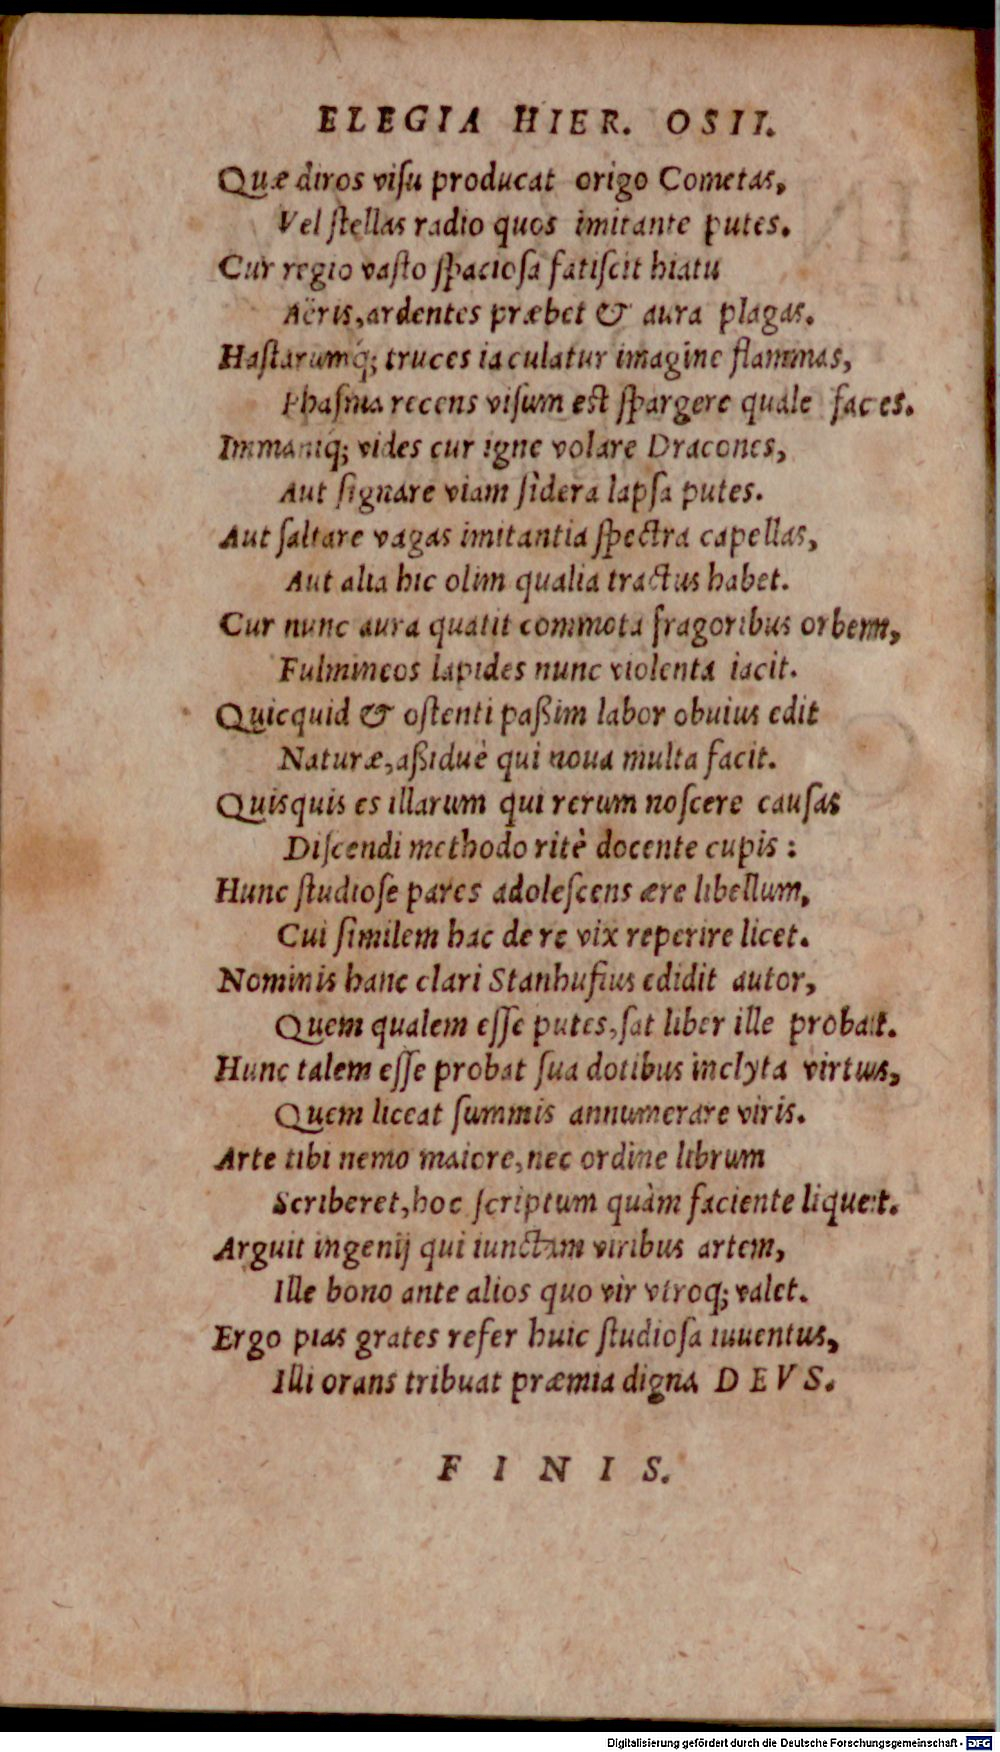 ELEGIA HIER. OSII.
Quæ diros viſu producat origo Cometas,
Vel ſtellas radio quos imitante putes.
Cur regio vaſto ſpacioſa fatiſcit hiatu
Aëris, ardentes præbet & aura plagas.
Haſtarumq́; truces iaculatur imagine flammas,
Phaſma recens viſum eſt ſpargere quale faces.
Immaniq́; vides cur igne volare Dracones,
Aut ſignare viam ſidera lapſa putes.
Aut ſaltare vagas imitantia ſpectra capellas,
Aut alia hic olim qualia tractus habet.
Cur nunc aura quatit commota fragoribus orbem,
Fulmineos lapides nunc violenta iacit.
Quicquid & oſtenti paßim labor obuius edit
Naturæ, aßiduè qui noua multa facit.
Quisquis es illarum qui rerum noſcere cauſas
Diſcendi methodo ritè docente cupis:
Hunc ſtudioſe pares adoleſcens ære libellum,
Cui ſimilem hac de re vix reperire licet.
Nominis hanc clari Stanhufius edidit autor,
Quem qualem eſſe putes, ſat liber ille probat.
Hunc talem eſſe probat ſua dotibus inclyta virtus,
Quem liceat ſummis annumerare viris.
Arte tibi nemo maiore, nec ordine librum
Scriberet, hoc ſcriptum quàm faciente liquet.
Arguit ingenij qui iunctam viribus artem,
Ille bono ante alios quo vir vtroq; valet.
Ergo pias grates refer huic ſtudioſa iuuentus,
Illi orans tribuat præmia digna DEVS.
FINIS.
Digitalisierung gefördert durch die Deutsche Forschungsgemeinschaft - DFG